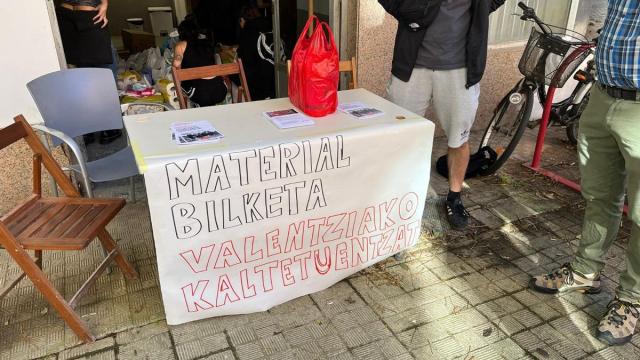 MATERIAL
BILKETA
VALENTZIAKO
KALTETUENTZAT